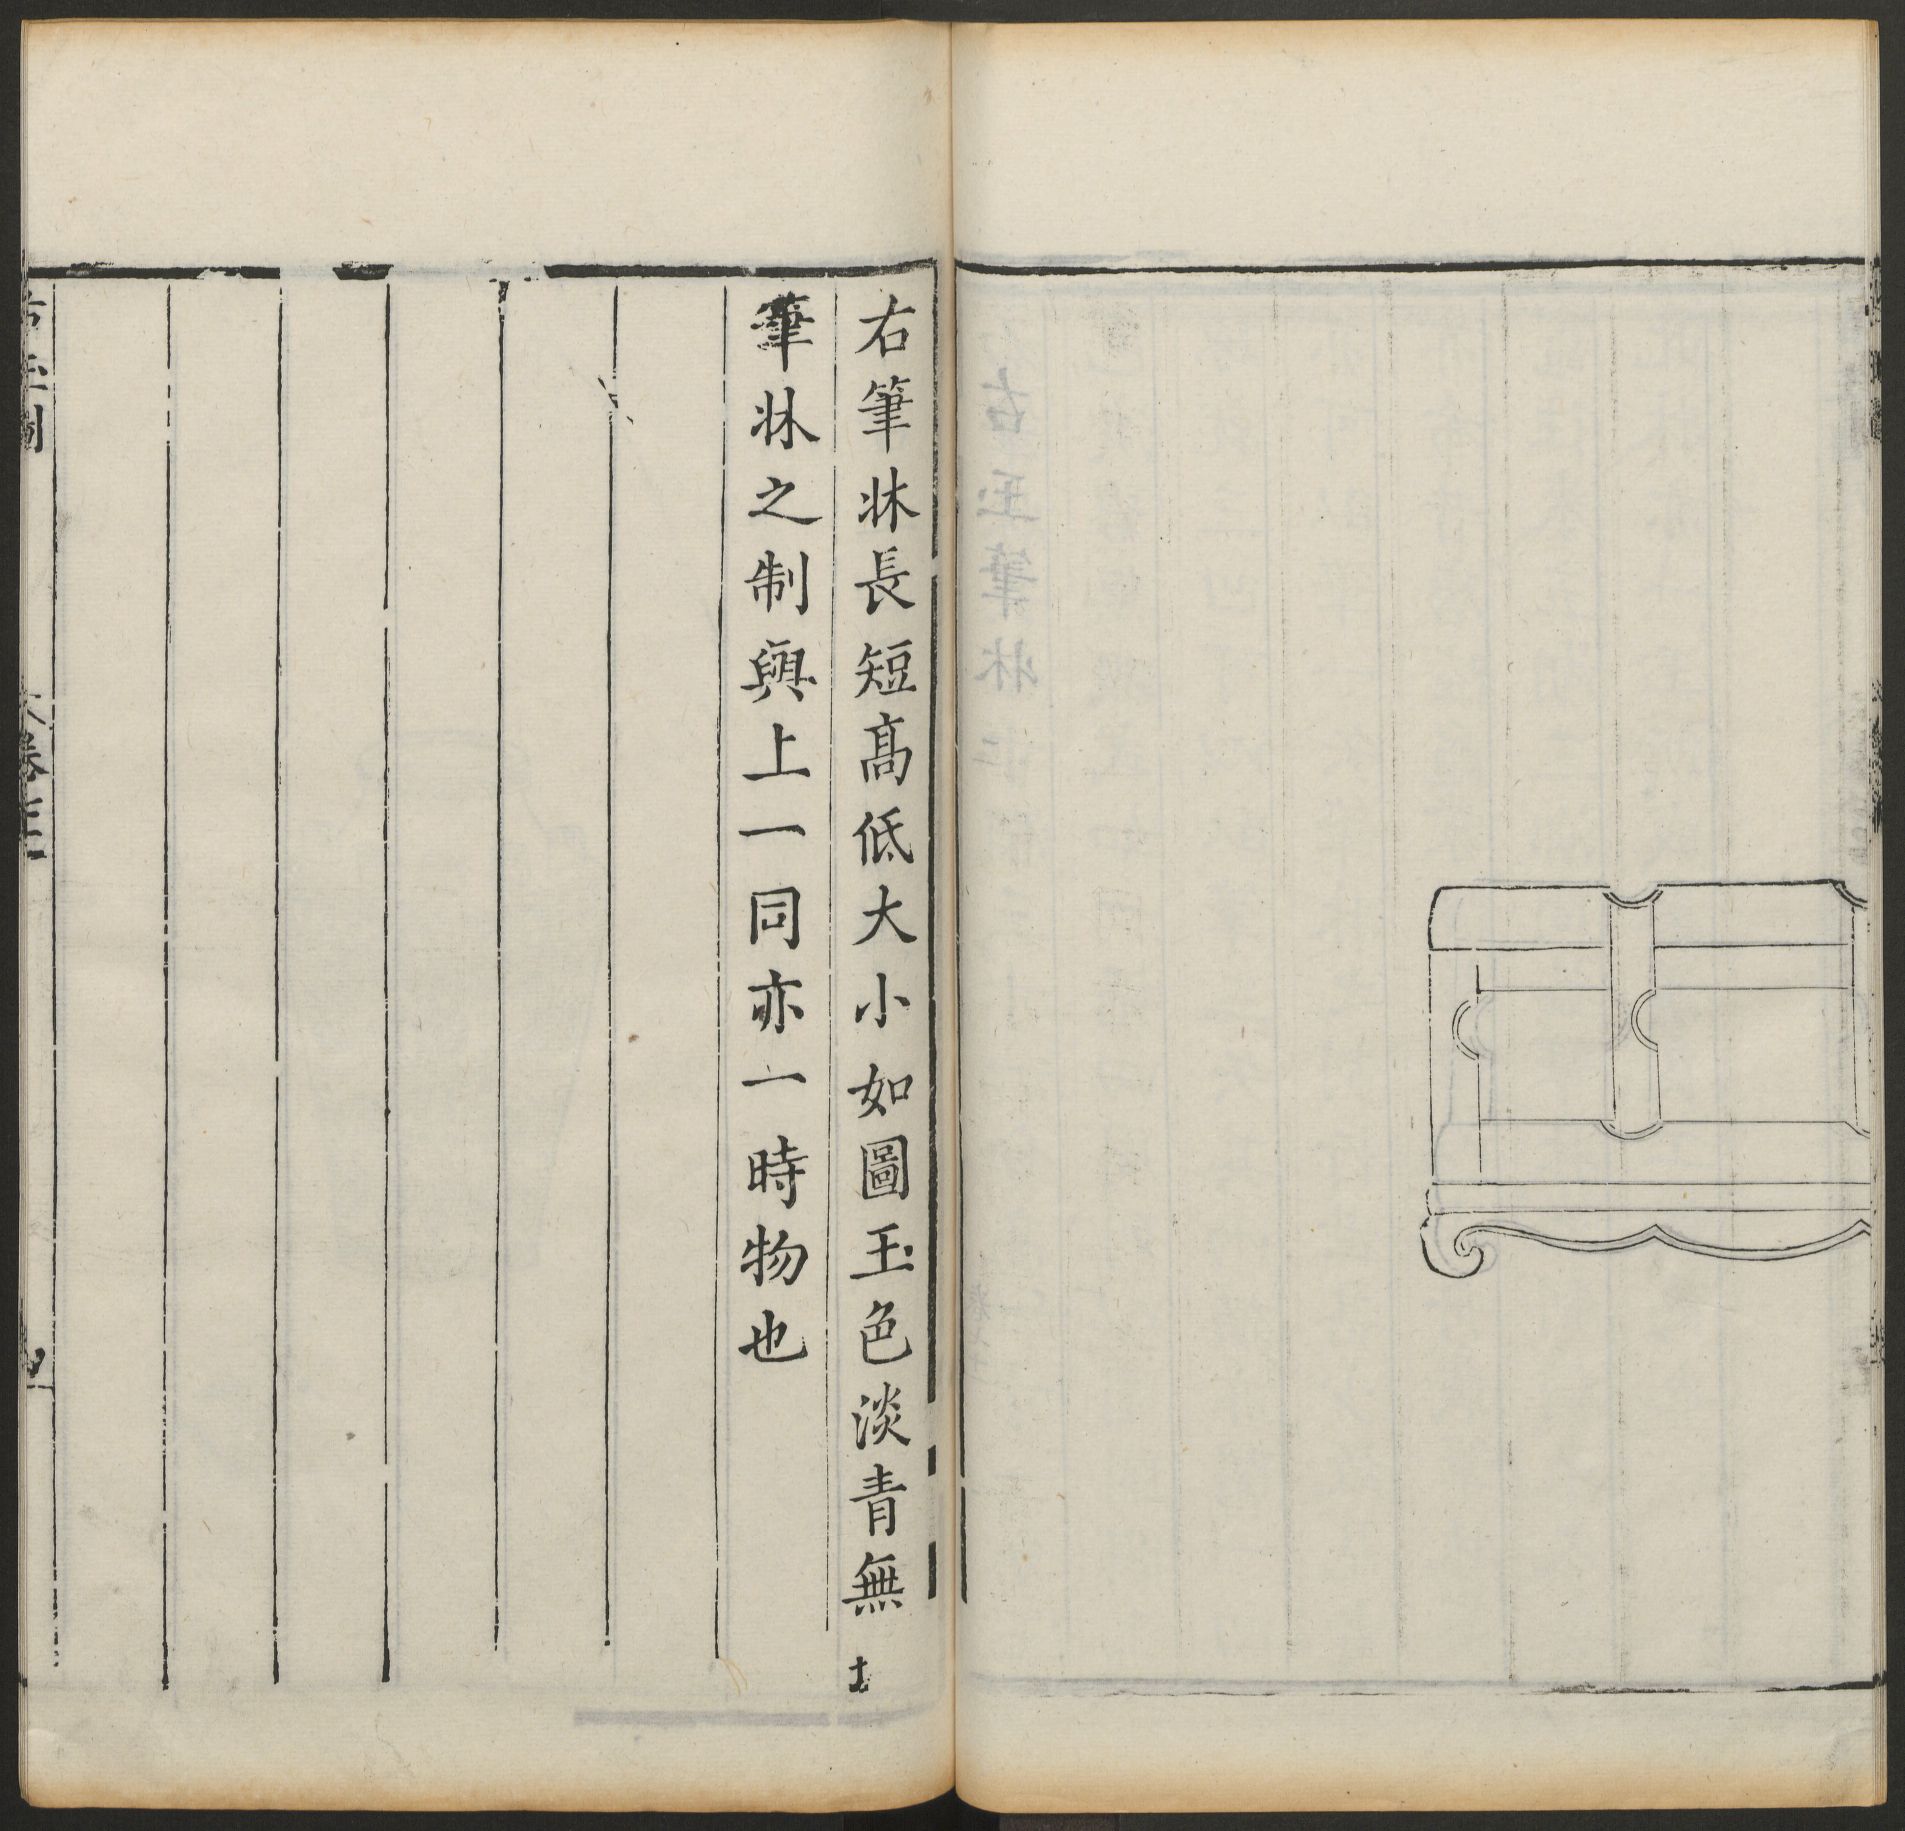 右筆牀長短高低大小如圖玉色淡青無
筆牀之制與上一同亦一時物也
卷